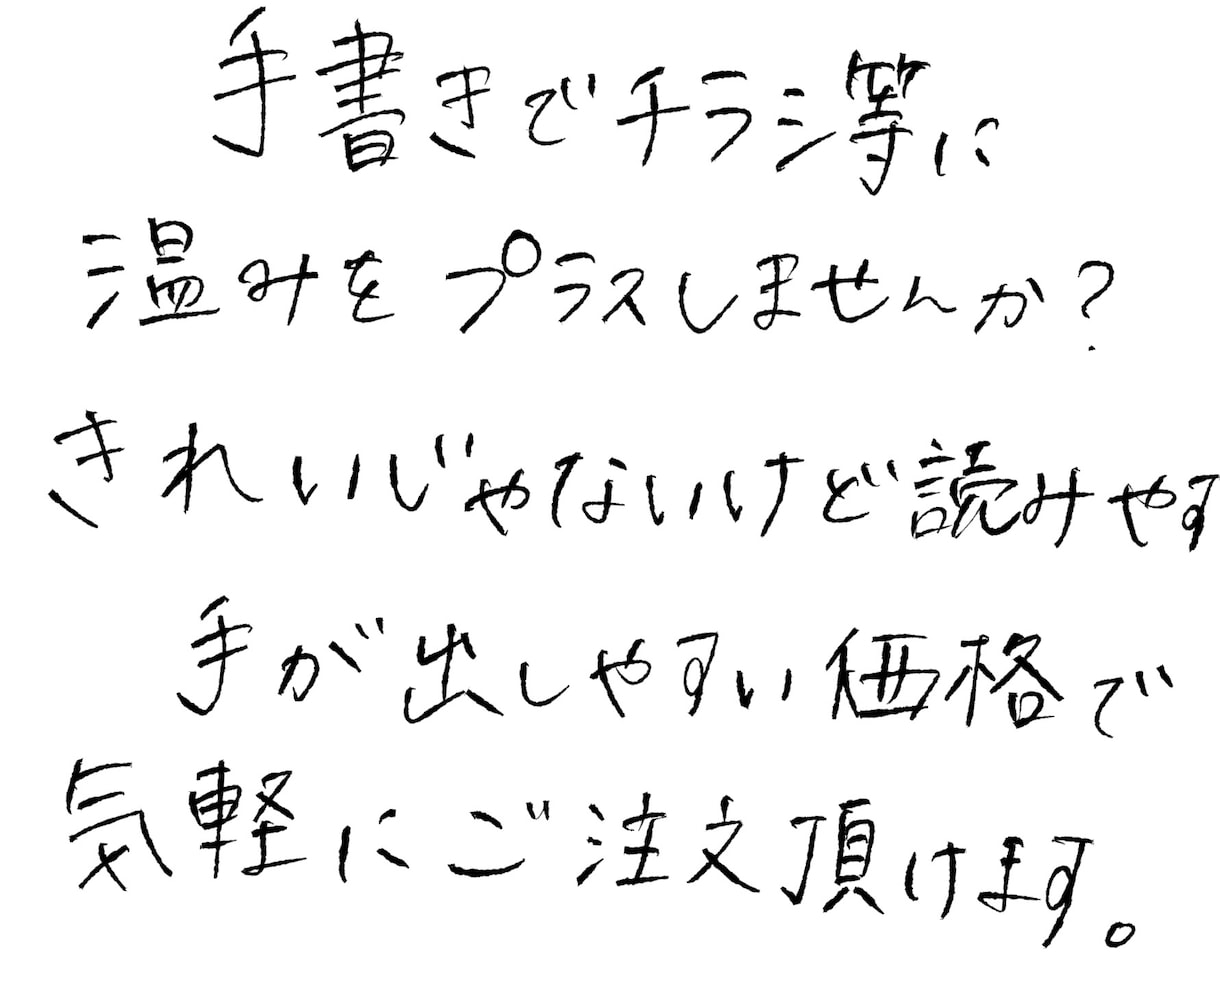 手書きでチラシ等に
温みをプラスしませんか?
きれいじゃないけど読みやす
手が出しやすい価格で
気軽にご注文頂けます。